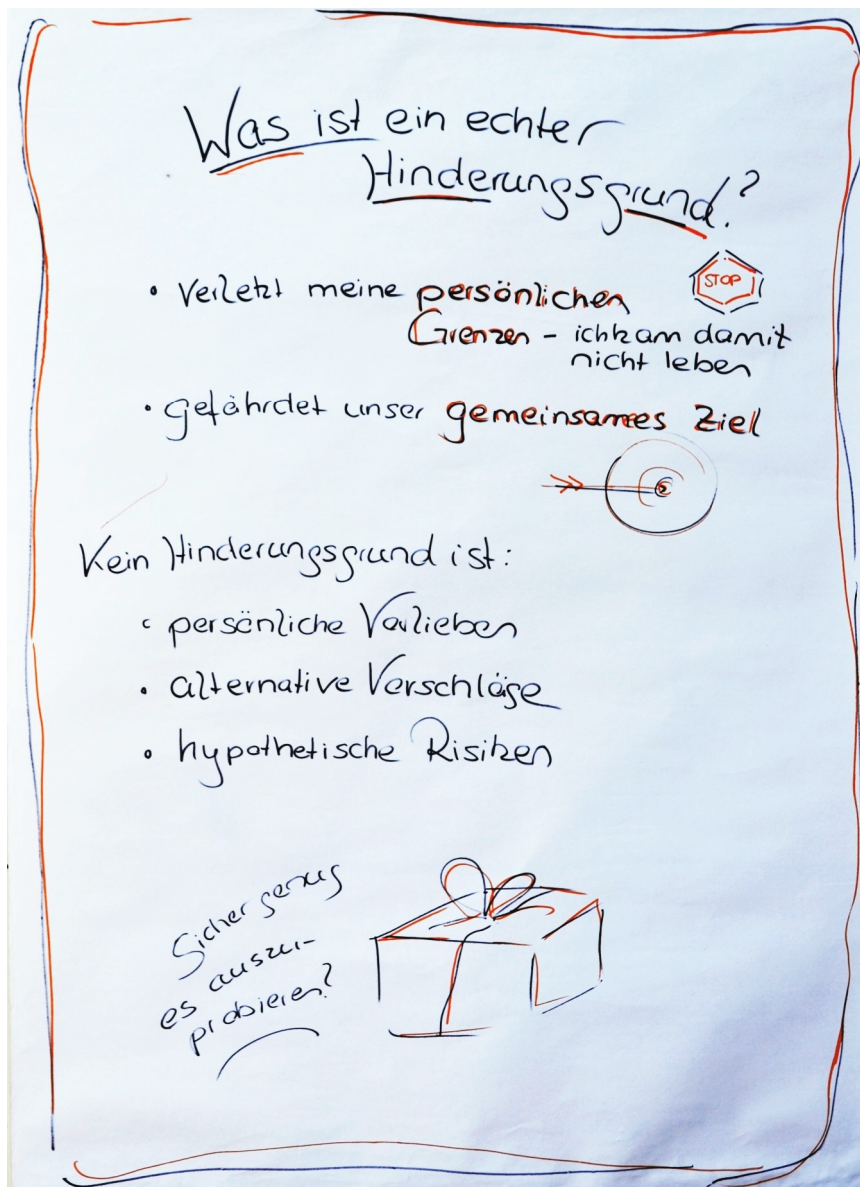 Was ist ein echter
Hinderungsgrund?
• verletzt meine persönlichen
STOP
Grenzen – ich kann damit
nicht leben
• gefährdet unser gemeinsames Ziel
Kein Hinderungsgrund ist:
• persönliche Vorlieben
• alternative Vorschläge
• hypothetische Risiken
Sicher genug
es auszu-
probieren?